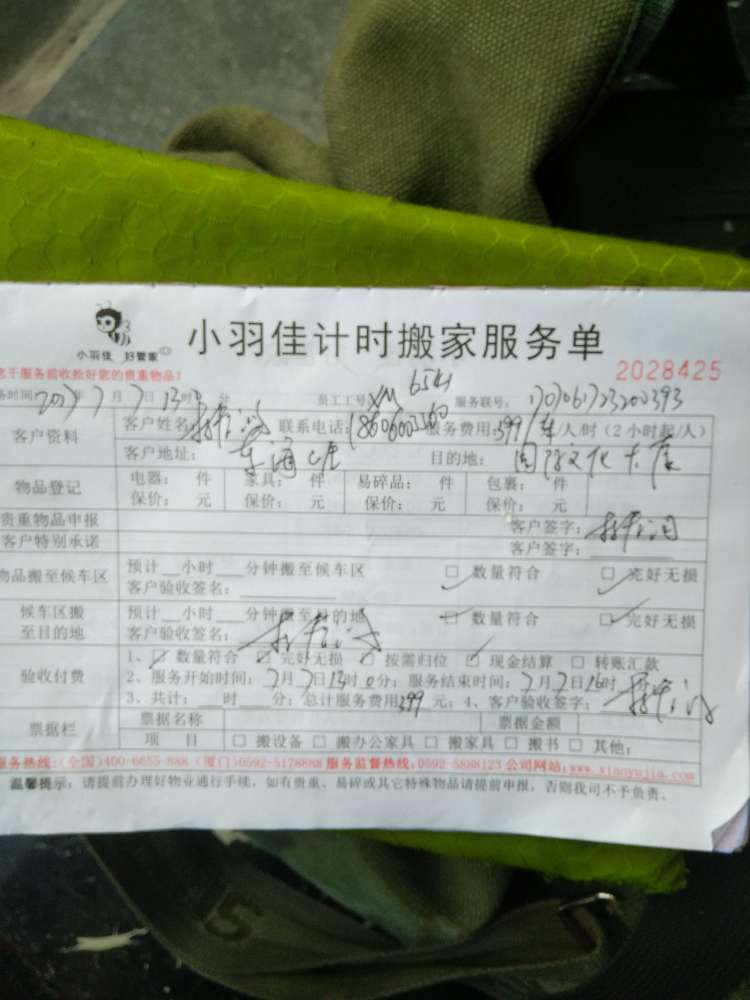 小羽佳 好管家
小羽佳计时搬家服务单
您于服务前收捡好您的贵重物品!
2028425
务时间: 2017年7月7日13时 分 员工工号: XM 服务联号:
客户资料
客户姓名: 联系电话: 服务费用: 399/车/人/时（2小时起/人）
客户地址: 目的地: 国际文化大厦
物品登记
电器: 件 家具: 件 易碎品: 件 包裹: 件
保价: 元 保价: 元 保价: 元 保价: 元
贵重物品申报 客户签字:
客户特别承诺 客户签字:
物品搬至候车区
预计__小时__分钟搬至候车区 □ 数量符合 □ 完好无损
客户验收签名:
候车区搬至目的地
预计__小时__分钟搬至目的地 □ 数量符合 □ 完好无损
客户验收签名:
验收付费
1、□ 数量符合 □ 完好无损 □ 按需归位 □ 现金结算 □ 转账汇款
2、服务开始时间: 7月7日13时0分; 服务结束时间: 7月7日16时
3、共计: __时__分; 总计服务费用399元; 4、客户验收签字:
票据栏
票据名称 票据金额
项 目 □ 搬设备 □ 搬办公家具 □ 搬家具 □ 搬书 □ 其他:
服务热线: (全国)400-6655-888 (厦门)0592-5178888 服务监督热线: 0592-5888123 公司网站: www.xiaoyujia.com
温馨提示: 请提前办理好物业通行手续, 如有贵重、易碎或其它特殊物品请提前申报, 否则我司不予负责。